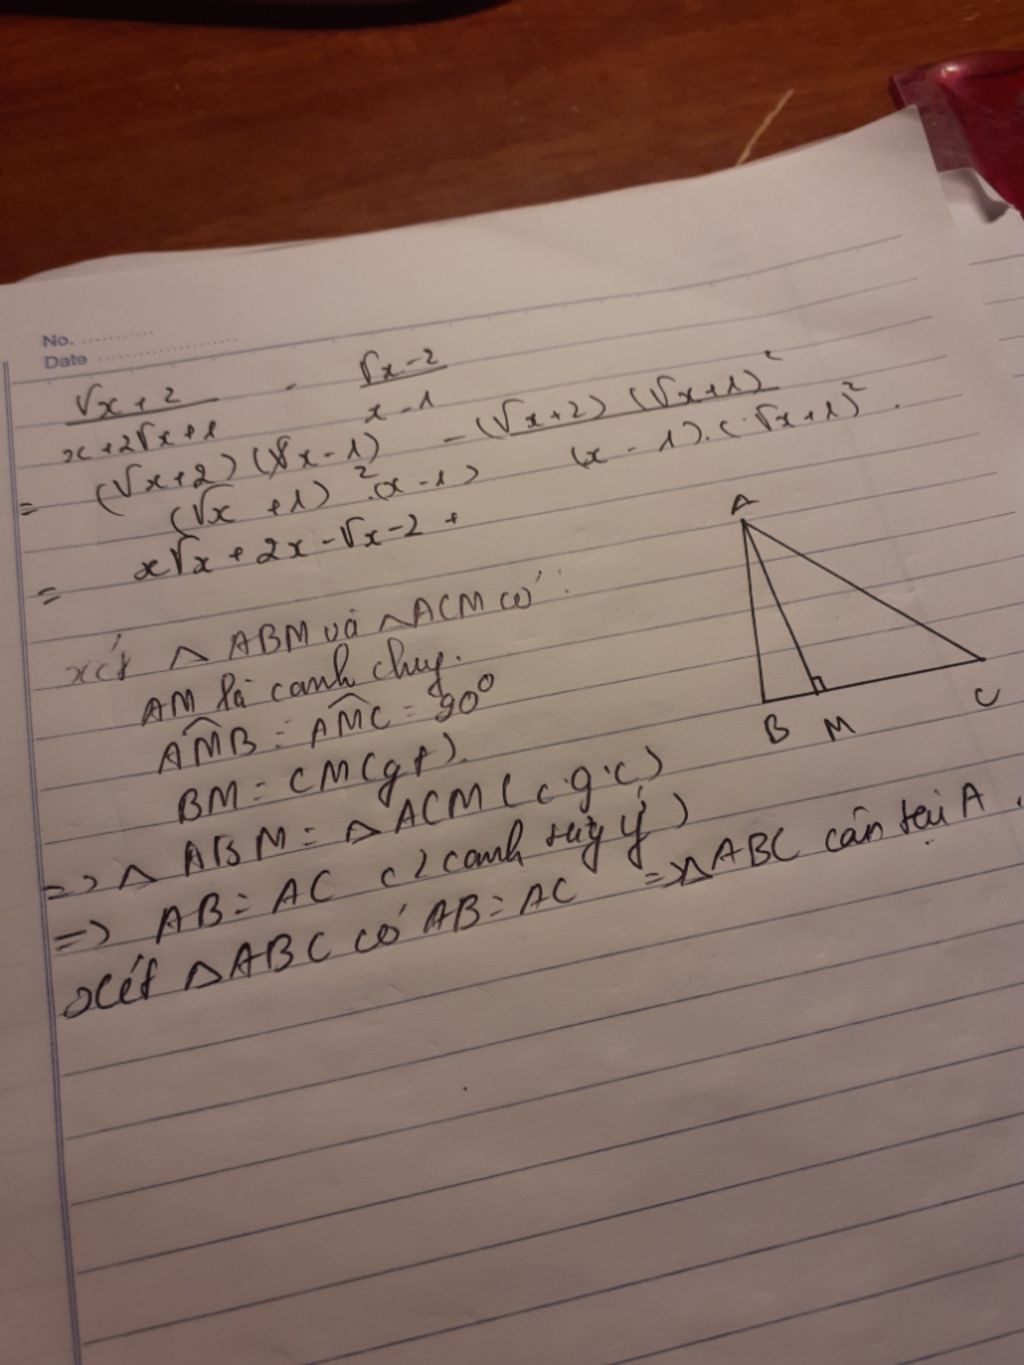 No. ..........
Date ..................
√x + 2 / x + 2√x + 1 - √x - 2 / x - 1
= (√x + 2) (√x - 1) / (√x + 1)² . (x - 1) - (√x + 2) (√x + 1)² / (x - 1) . (√x + 1)² .
= x√x + 2x - √x - 2 +
xét △ ABM và △ACM có :
AM là canh chug.
AMB = AMC = 90°
BM = CM (gt).
=> △ ABM = △ ACM (c.g.c)
=> AB = AC (2 canh tứg ứ)
Xét △ABC có AB = AC => △ABC cân tại A .
A
B M C